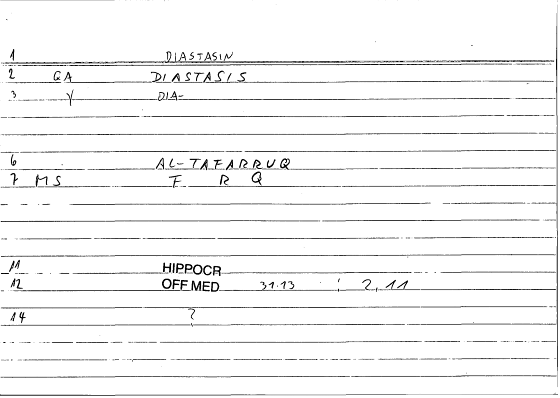 1 DIASTASIN
2 GA DIASTASIS
3 Y DIA-
6 AL-TAFARRUQ
7 MS F R Q
11 HIPPOCR
12 OFF.MED 31.13 : 2,11
14 ?